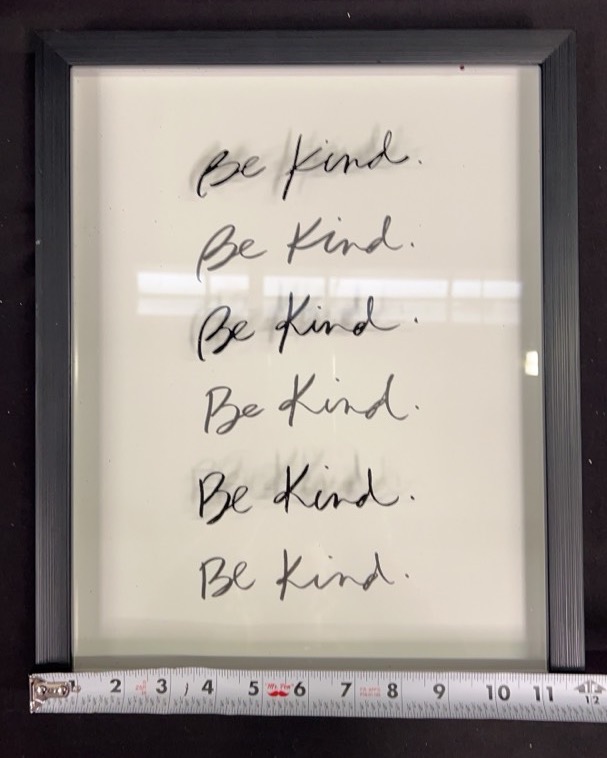 Be Kind.
Be Kind.
Be Kind.
Be Kind.
Be Kind.
Be Kind.
1 2 3 4 5 6 7 8 9 10 11 12